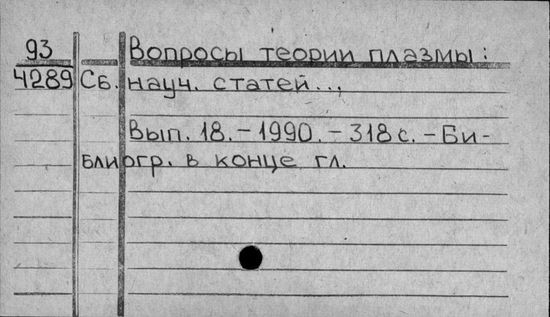 93 Вопросы теории плазмы:
4289 Сб. науч. статей..,
Вып. 18. – 1990. – 318 с. – Би-
блиогр. в конце гл.